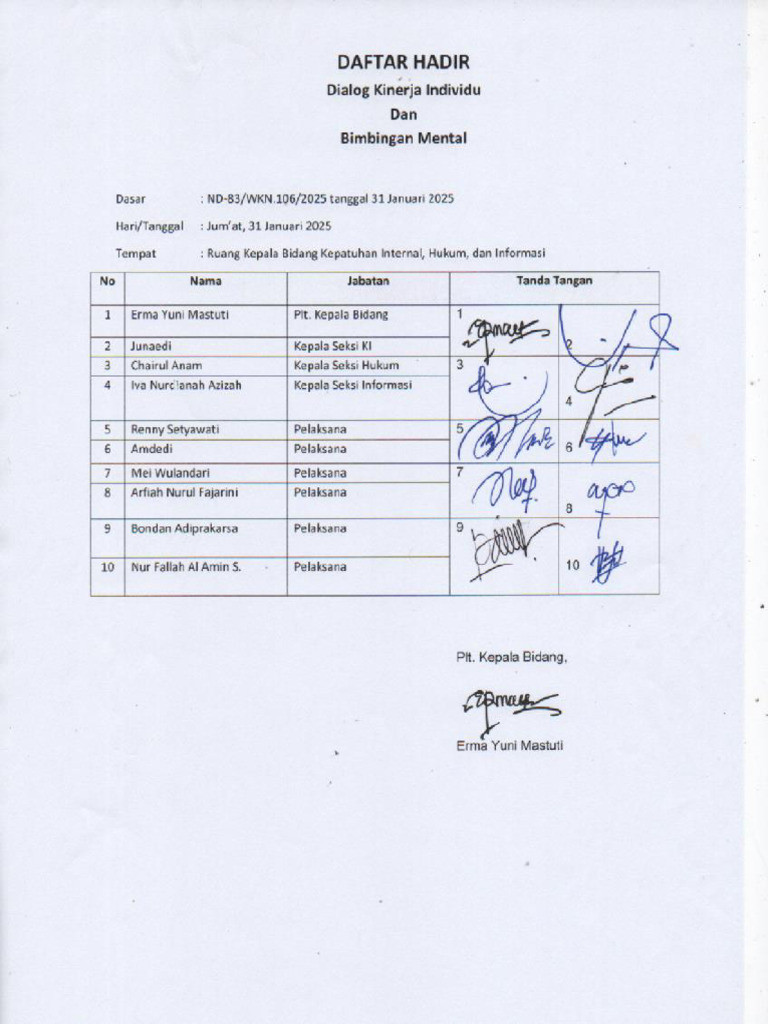 DAFTAR HADIR
Dialog Kinerja Individu
Dan
Bimbingan Mental
Dasar : ND-83/WKN.106/2025 tanggal 31 Januari 2025
Hari/Tanggal : Jum'at, 31 Januari 2025
Tempat : Ruang Kepala Bidang Kepatuhan Internal, Hukum, dan Informasi
No Nama Jabatan Tanda Tangan
1 Erma Yuni Mastuti Plt. Kepala Bidang 1
2 Junaedi Kepala Seksi KI 2
3 Chairul Anam Kepala Seksi Hukum 3
4 Iva Nurdianah Azizah Kepala Seksi Informasi 4
5 Renny Setyawati Pelaksana 5
6 Amdedi Pelaksana 6
7 Mei Wulandari Pelaksana 7
8 Arfiah Nurul Fajarini Pelaksana 8
9 Bondan Adiprakarsa Pelaksana 9
10 Nur Fallah Al Amin S. Pelaksana 10
Plt. Kepala Bidang,
Erma Yuni Mastuti